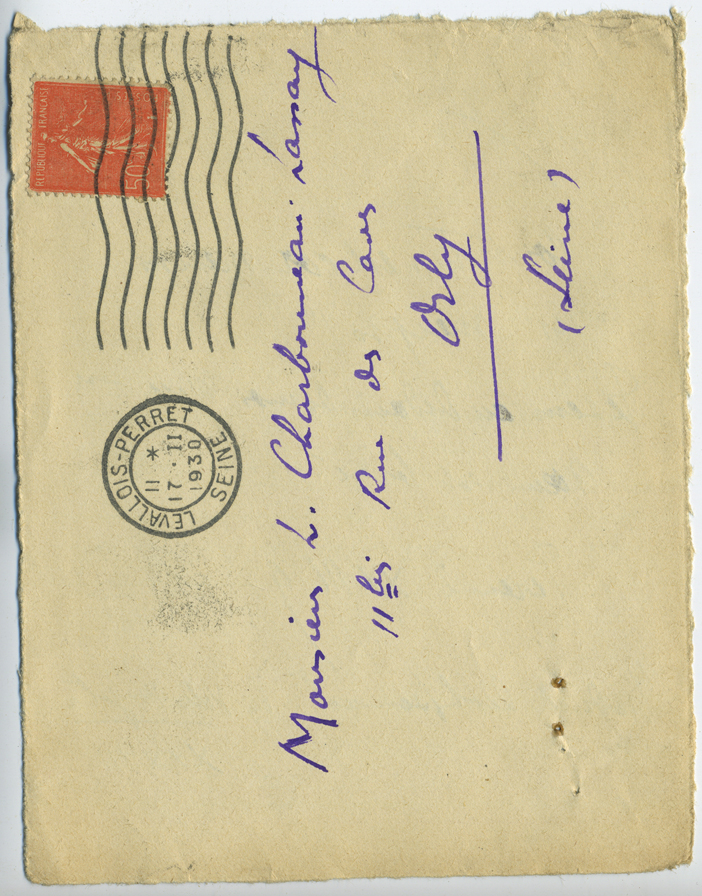 REPUBLIQUE FRANÇAISE
50c
LEVALLOIS-PERRET
11 *
17 · II
1930
SEINE
Monsieur L. Charbonneau Lassay
11 bis Rue des
Orly
(Seine)